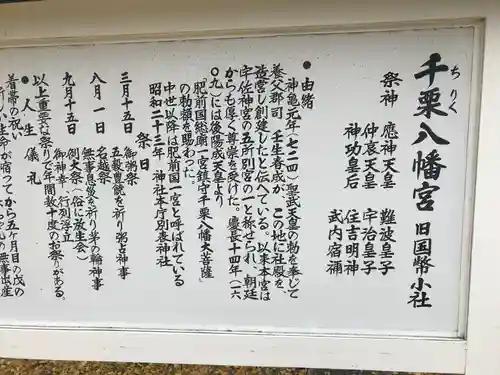 千栗八幡宮 旧国幣小社
ちりく
祭神 應神天皇 難波皇子
仲哀天皇 宇治皇子
神功皇后 住吉明神
武内宿禰
●由緒
神亀元年(七二四)聖武天皇の勅を奉じて
養父郡司 壬生春成が この地に社殿を
造営し創建したと伝へている。以来本宮は
宇佐神宮の五所別宮の一と称せられ、朝廷
からも厚く尊崇を受けた。慶長十四年(一六
〇九)には後陽成天皇より
「肥前国総廟一宮鎮守千栗八幡大菩薩」
の勅額を賜わった。
中世以降は肥前国一宮と呼ばれている
昭和二十三年 神社本庁別表神社
祭日
三月十五日 御粥祭
五穀豊饒を祈り粥占神事
八月一日 名越祭
無事息災を祈り茅の輪神事
九月十五日 例大祭(俗に放生会)
御神幸・行列浮立
以上重要な祭りで年間数十度のお祭りがある。
●人生儀礼
着帯の祝い
新しい生命が宿ってから五ヶ月目の戌の